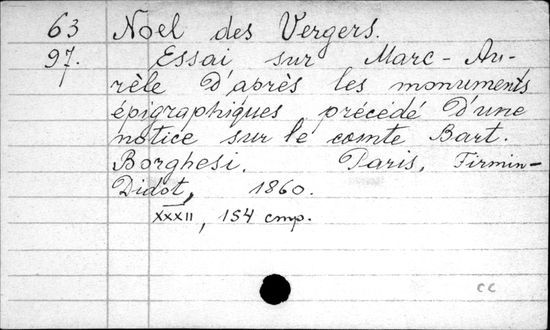 63 Noël des Vergers.
97. Essai sur Marc-Au-
rèle d'après les monuments
épigraphiques précédé d'une
notice sur le comte Bart.
Borghesi. Paris, Firmin-
Didot, 1860.
XXXII, 154 стр.
cc